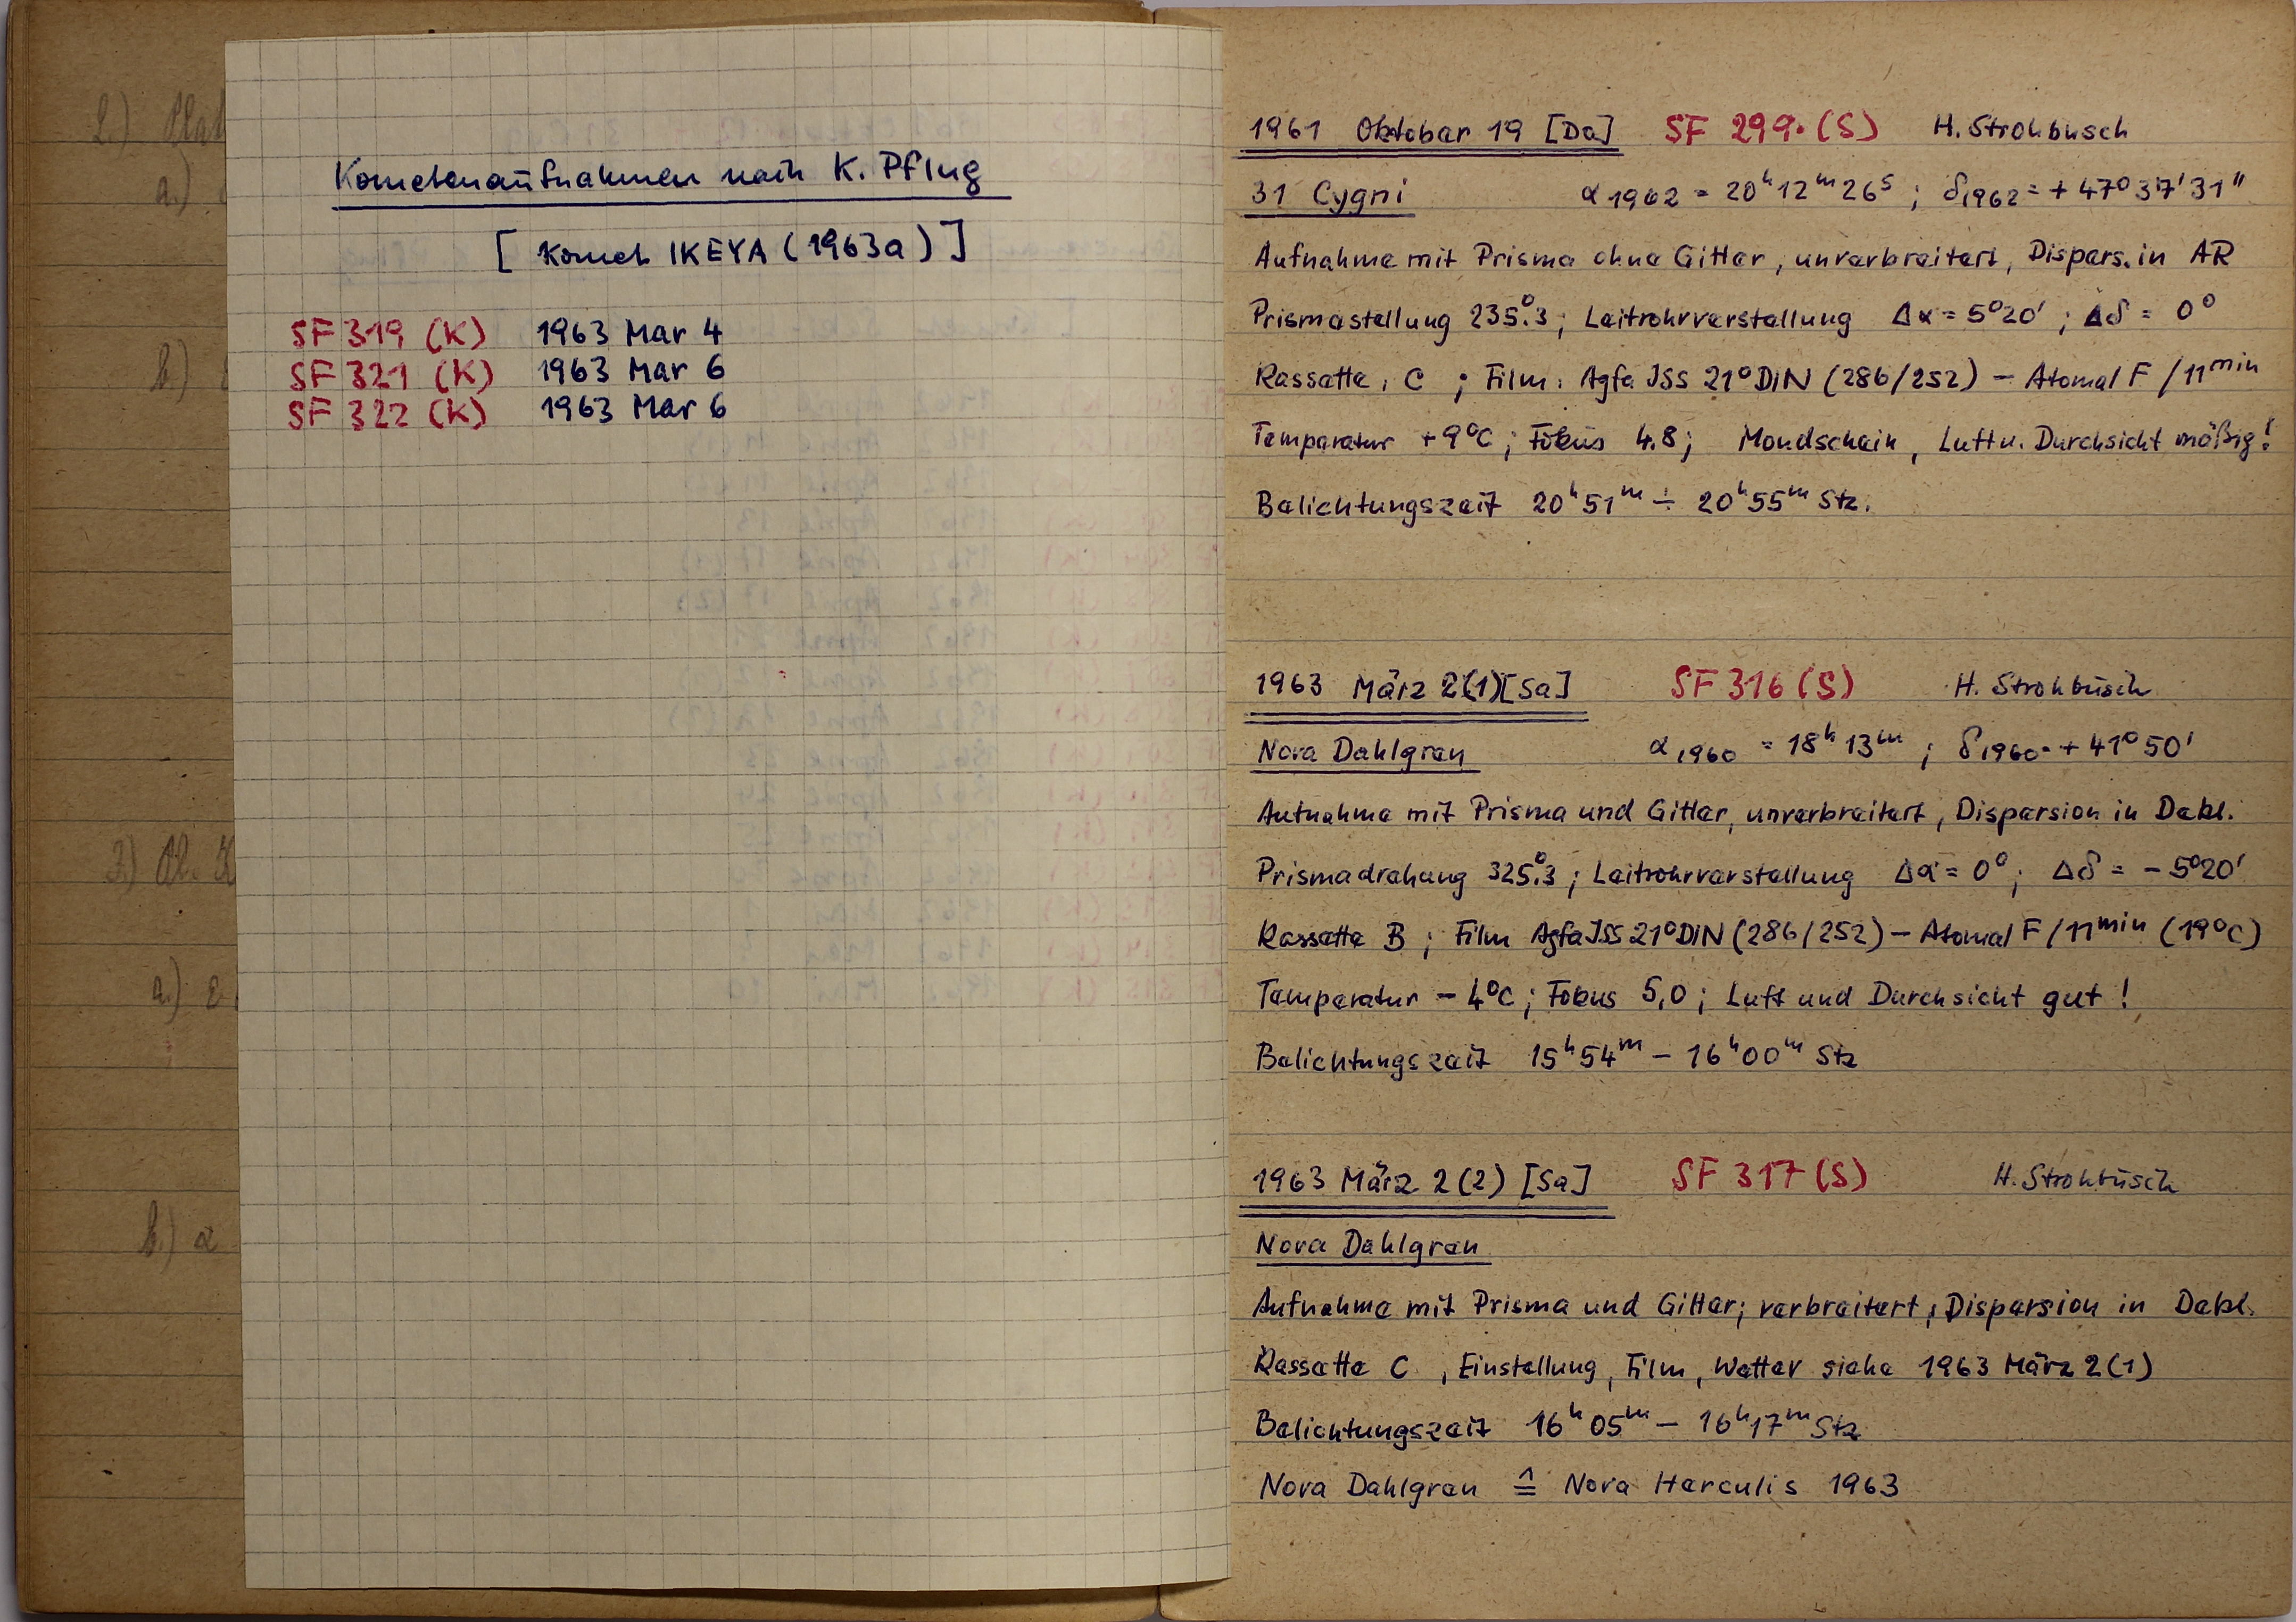 2.) Plat
a.)
b.)
3.)
a.)
b.) α
Kometenaufnahmen nach K. Pflug
[ Komet IKEYA (1963a) ]
SF 319 (K) 1963 Mar 4
SF 321 (K) 1963 Mar 6
SF 322 (K) 1963 Mar 6
1961 Oktober 19 [Do] SF 299. (S) H. Strohbusch
31 Cygni α1962 = 20h12m26s ; δ1962 = + 47°37'31"
Aufnahme mit Prisma ohne Gitter, unverbreitert, Dispers. in AR
Prismastellung 235.°3 ; Leitrohrverstellung Δα = 5°20' ; Δδ = 0°
Kassette, C ; Film: Agfa ISS 21°DIN (286/252) – Atomal F /11min
Temperatur +9°C ; Fokus 4.8 ; Mondschein, Luft u. Durchsicht mäßig!
Belichtungszeit 20h51m ÷ 20h55m Stz.
1963 März 2(1)[Sa] SF 316 (S) H. Strohbusch
Nova Dahlgren α1960 = 18h 13m ; δ1960 = + 41°50'
Aufnahme mit Prisma und Gitter, unverbreitert, Dispersion in Dekl.
Prismadrehung 325.°3 ; Leitrohrverstellung Δα = 0° ; Δδ = – 5°20'
Kassette B ; Film Agfa ISS 21°DIN (286/252) – Atomal F /11min (19°C)
Temperatur – 4°C ; Fokus 5,0 ; Luft und Durchsicht gut !
Belichtungszeit 15h54m – 16h00m Stz
1963 März 2(2) [Sa] SF 317 (S) H. Strohbusch
Nova Dahlgren
Aufnahme mit Prisma und Gitter; verbreitert, Dispersion in Dekl.
Kassette C , Einstellung, Film, Wetter siehe 1963 März 2(1)
Belichtungszeit 16h05m – 16h17m Stz
Nova Dahlgren ≙ Nova Herculis 1963